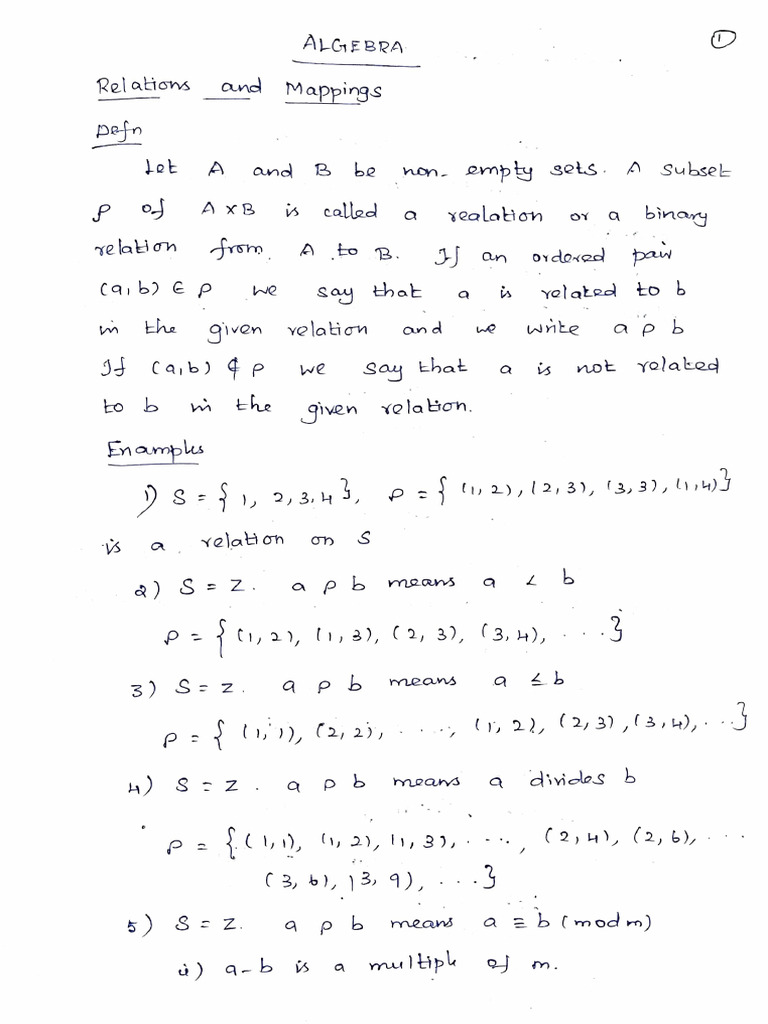 ALGEBRA
1
Relations and Mappings
Defn
Let A and B be non-empty sets. A subset
ρ of A×B is called a realation or a binary
relation from A to B. If an ordered pair
(a,b) ∈ ρ we say that a is related to b
in the given relation and we write a ρ b
If (a,b) ∉ ρ we say that a is not related
to b in the given relation.
Examples
1) S = { 1, 2,3,4 }, ρ = { (1,2), (2,3), (3,3), (1,4)}
is a relation on S
2) S = Z. a ρ b means a < b
ρ = { (1,2), (1,3), (2,3), (3,4), ....}
3) S = Z. a ρ b means a ≤ b
ρ = { (1,1), (2,2), ....., (1,2), (2,3), (3,4), ...}
4) S = Z. a ρ b means a divides b
ρ = { (1,1), (1,2), (1,3), ....., (2,4), (2,6), ...
(3,6), (3,9), ...}
5) S = Z. a ρ b means a ≡ b (mod m)
ii) a-b is a multiple of m.